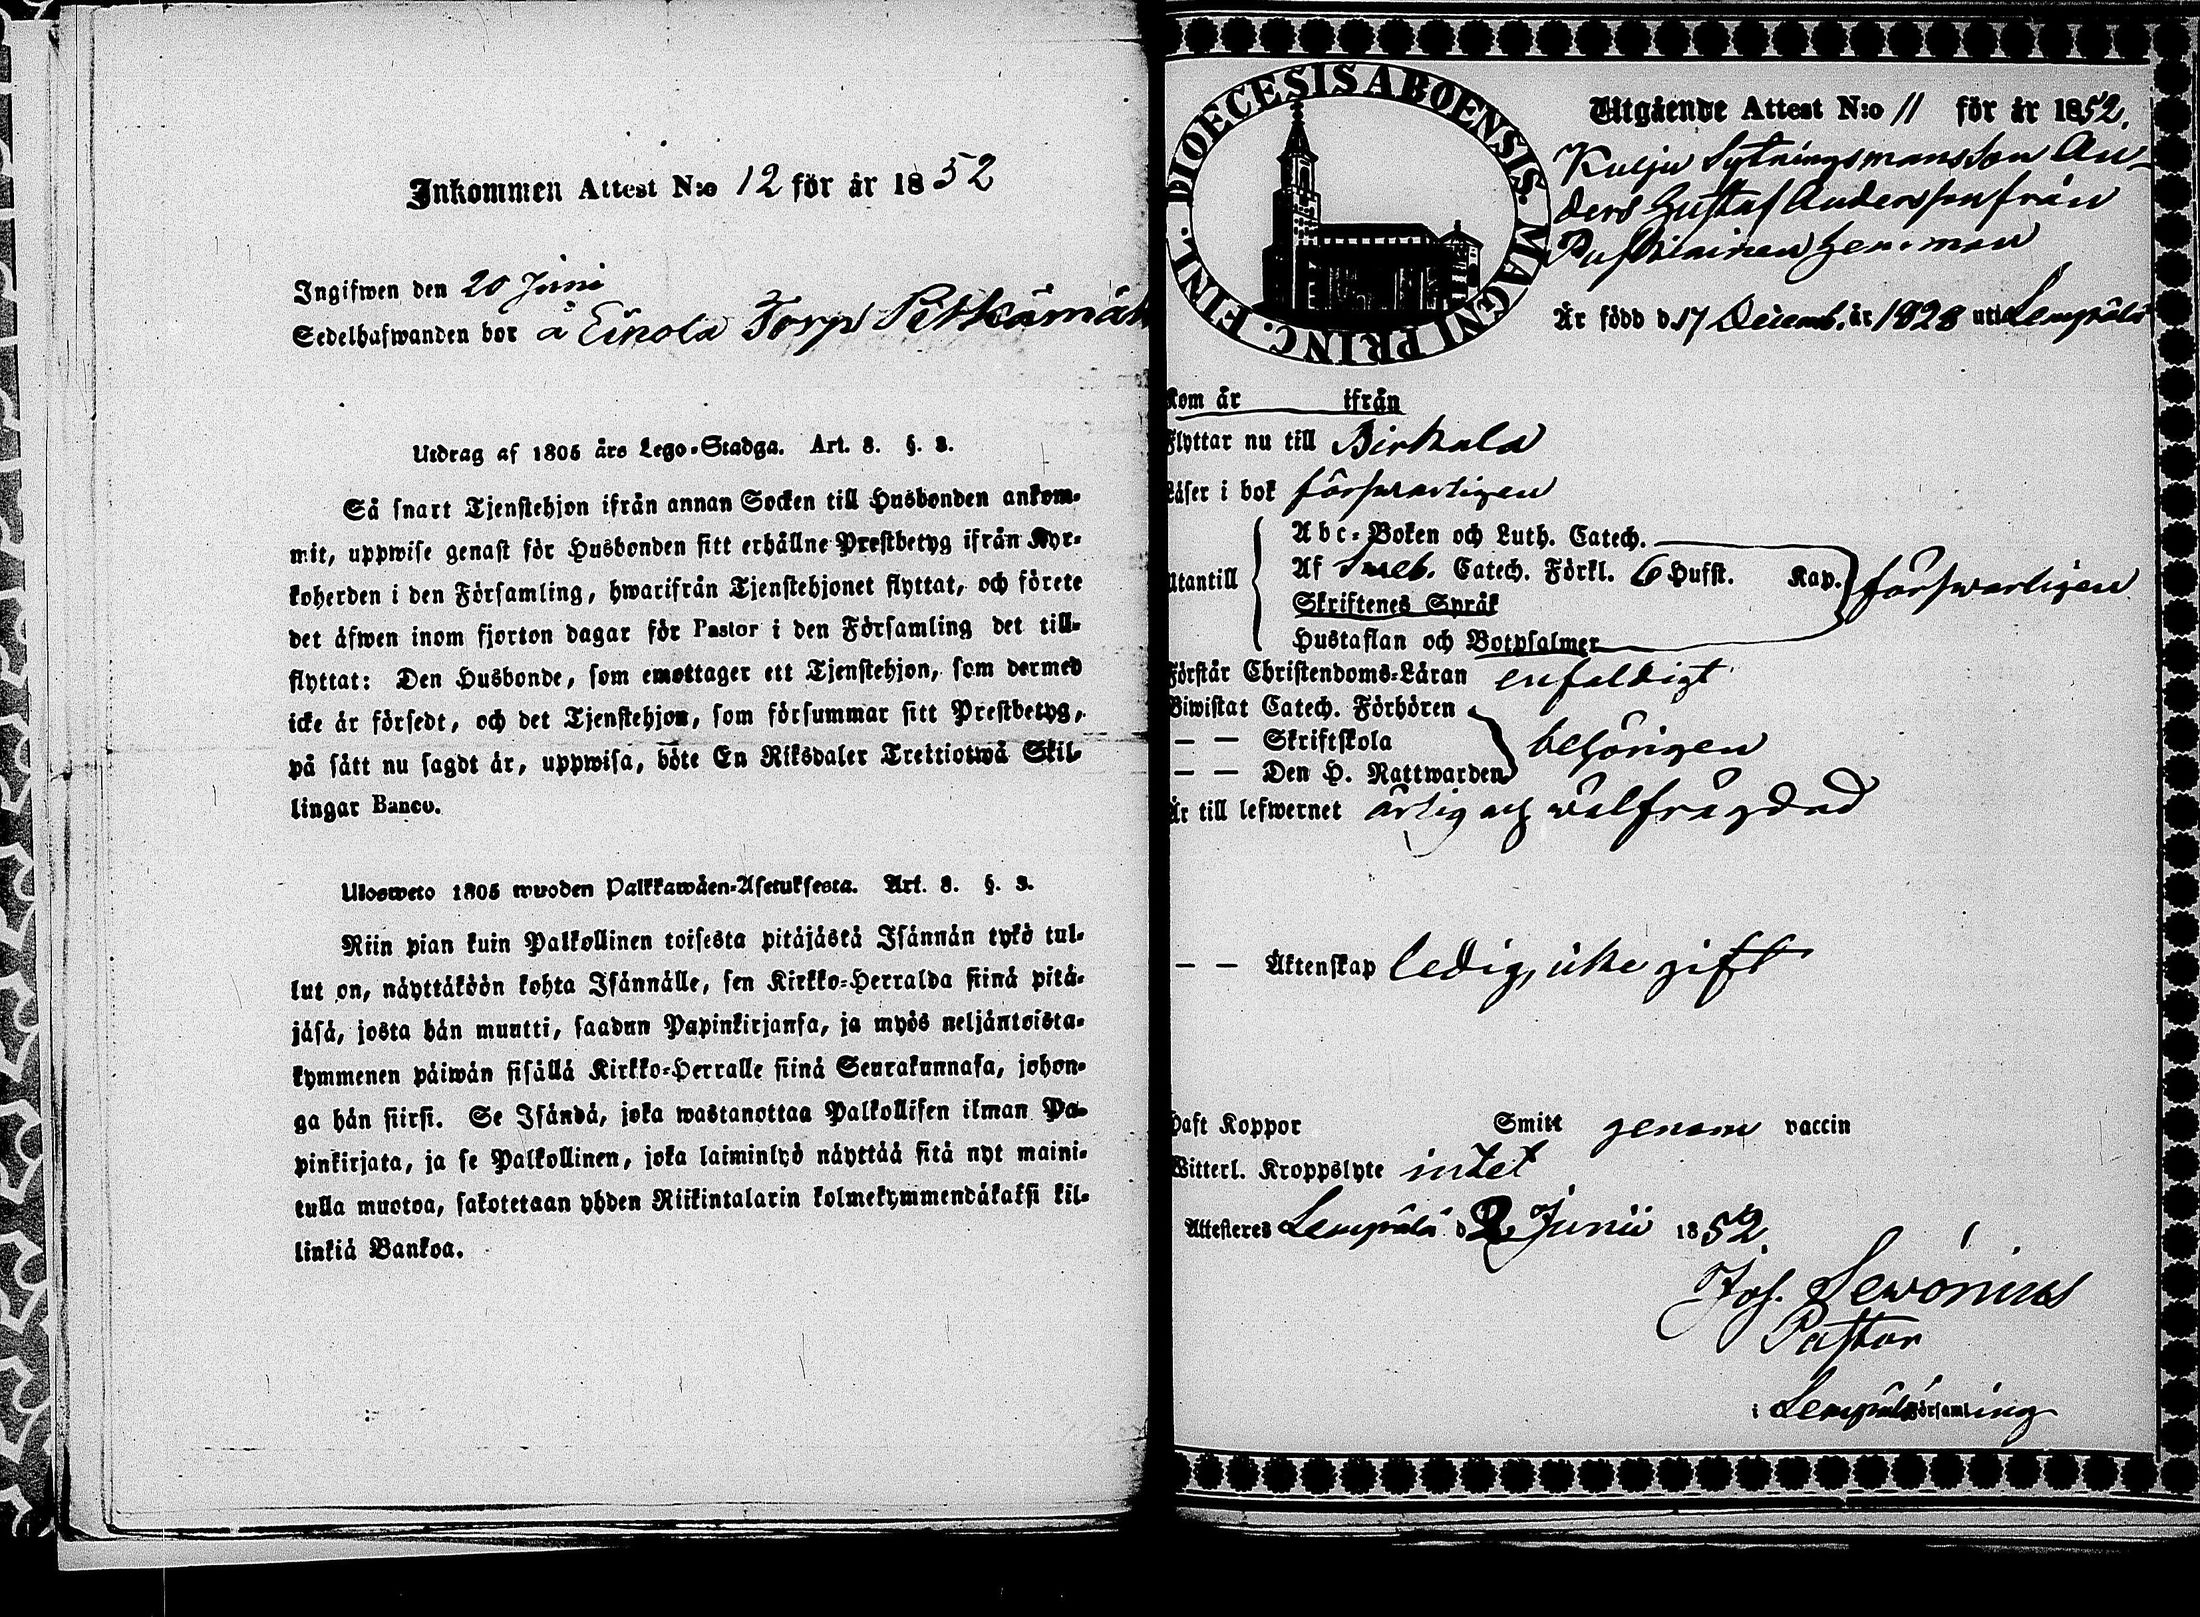 Inkommen Attest N:o 12 för år 1852
Ingifwen den 20 Juni
Sedelhafwanden bor å Einola Torp Pitkämäk
Utdrag af 1805 års Lego-Stadga. Art. 8. §. 3.
Så snart Tjenstehjon ifrån annan Socken till Husbonden ankom-
mit, uppwise genast för Husbonden sitt erhållne Prestbetyg ifrån Kyr-
koherden i den Församling, hwarifrån Tjenstehjonet flyttat, och förete
det äfwen inom fjorton dagar för Pastor i den Församling det till-
flyttat: Den Husbonde, som emottager ett Tjenstehjon, som dermed
icke är försedt, och det Tjenstehjon, som försummar sitt Prestbetyg,
på sätt nu sagdt är, uppwisa, böte En Riksdaler Trettiotwå Skil-
lingar Banco.
Ulosweto 1805 wuoden Palkkawäen-Asetuksesta. Art. 8. §. 3.
Niin pian kuin Palkollinen toisesta pitäjästä Isännän tykö tul-
lut on, näyttäköön kohta Isännälle, sen Kirkko-Herralda siinä pitä-
jäsä, josta hän muutti, saadun Papinkirjansa, ja myös neljäntoista-
kymmenen päiwän sisällä Kirkko-Herralle siinä Seurakunnasa, johon-
ga hän siirsi. Se Isändä, joka wastanottaa Palkollisen ilman Pa-
pinkirjata, ja se Palkollinen, joka laiminlyö näyttää sitä nyt maini-
tulla muotoa, sakotetaan yhden Riikintalarin kolmekymmendäkaksi kil-
linkiä Bankoa.
DIOECESIS ABOENSIS. MAGNI PRINC. FINL.
Utgående Attest N:o 11 för år 1852.
Kulju Sytningsmansson An-
ders Gustaf Andersson från
hemman
Är född d. 17 Decemb. år 1828 uti Lempälä
Kom år ifrån
Flyttar nu till Birkala
Läser i bok försvarligen
Utantill
Abc-Boken och Luth. Catech.
Af Sveb. Catech. Förkl. 6 Hufst. Kap. försvarligen
Skriftenes Språk
Hustaflan och Botpsalmer
Förstår Christendoms-Läran enfaldigt
Biwistat Catech. Förhören
— — Skriftskola behörigen
— — Den H. Nattwarden
Är till lefwernet ärlig och välfrägdad
— — Äktenskap ledig, icke gift
Haft Koppor Smitt genom vaccin
Witterl. Kroppslyte intet
Attesteres Lempälä d. 2 Junii 1852
Jos. Sewonius
Pastor
i Lempälä Församling